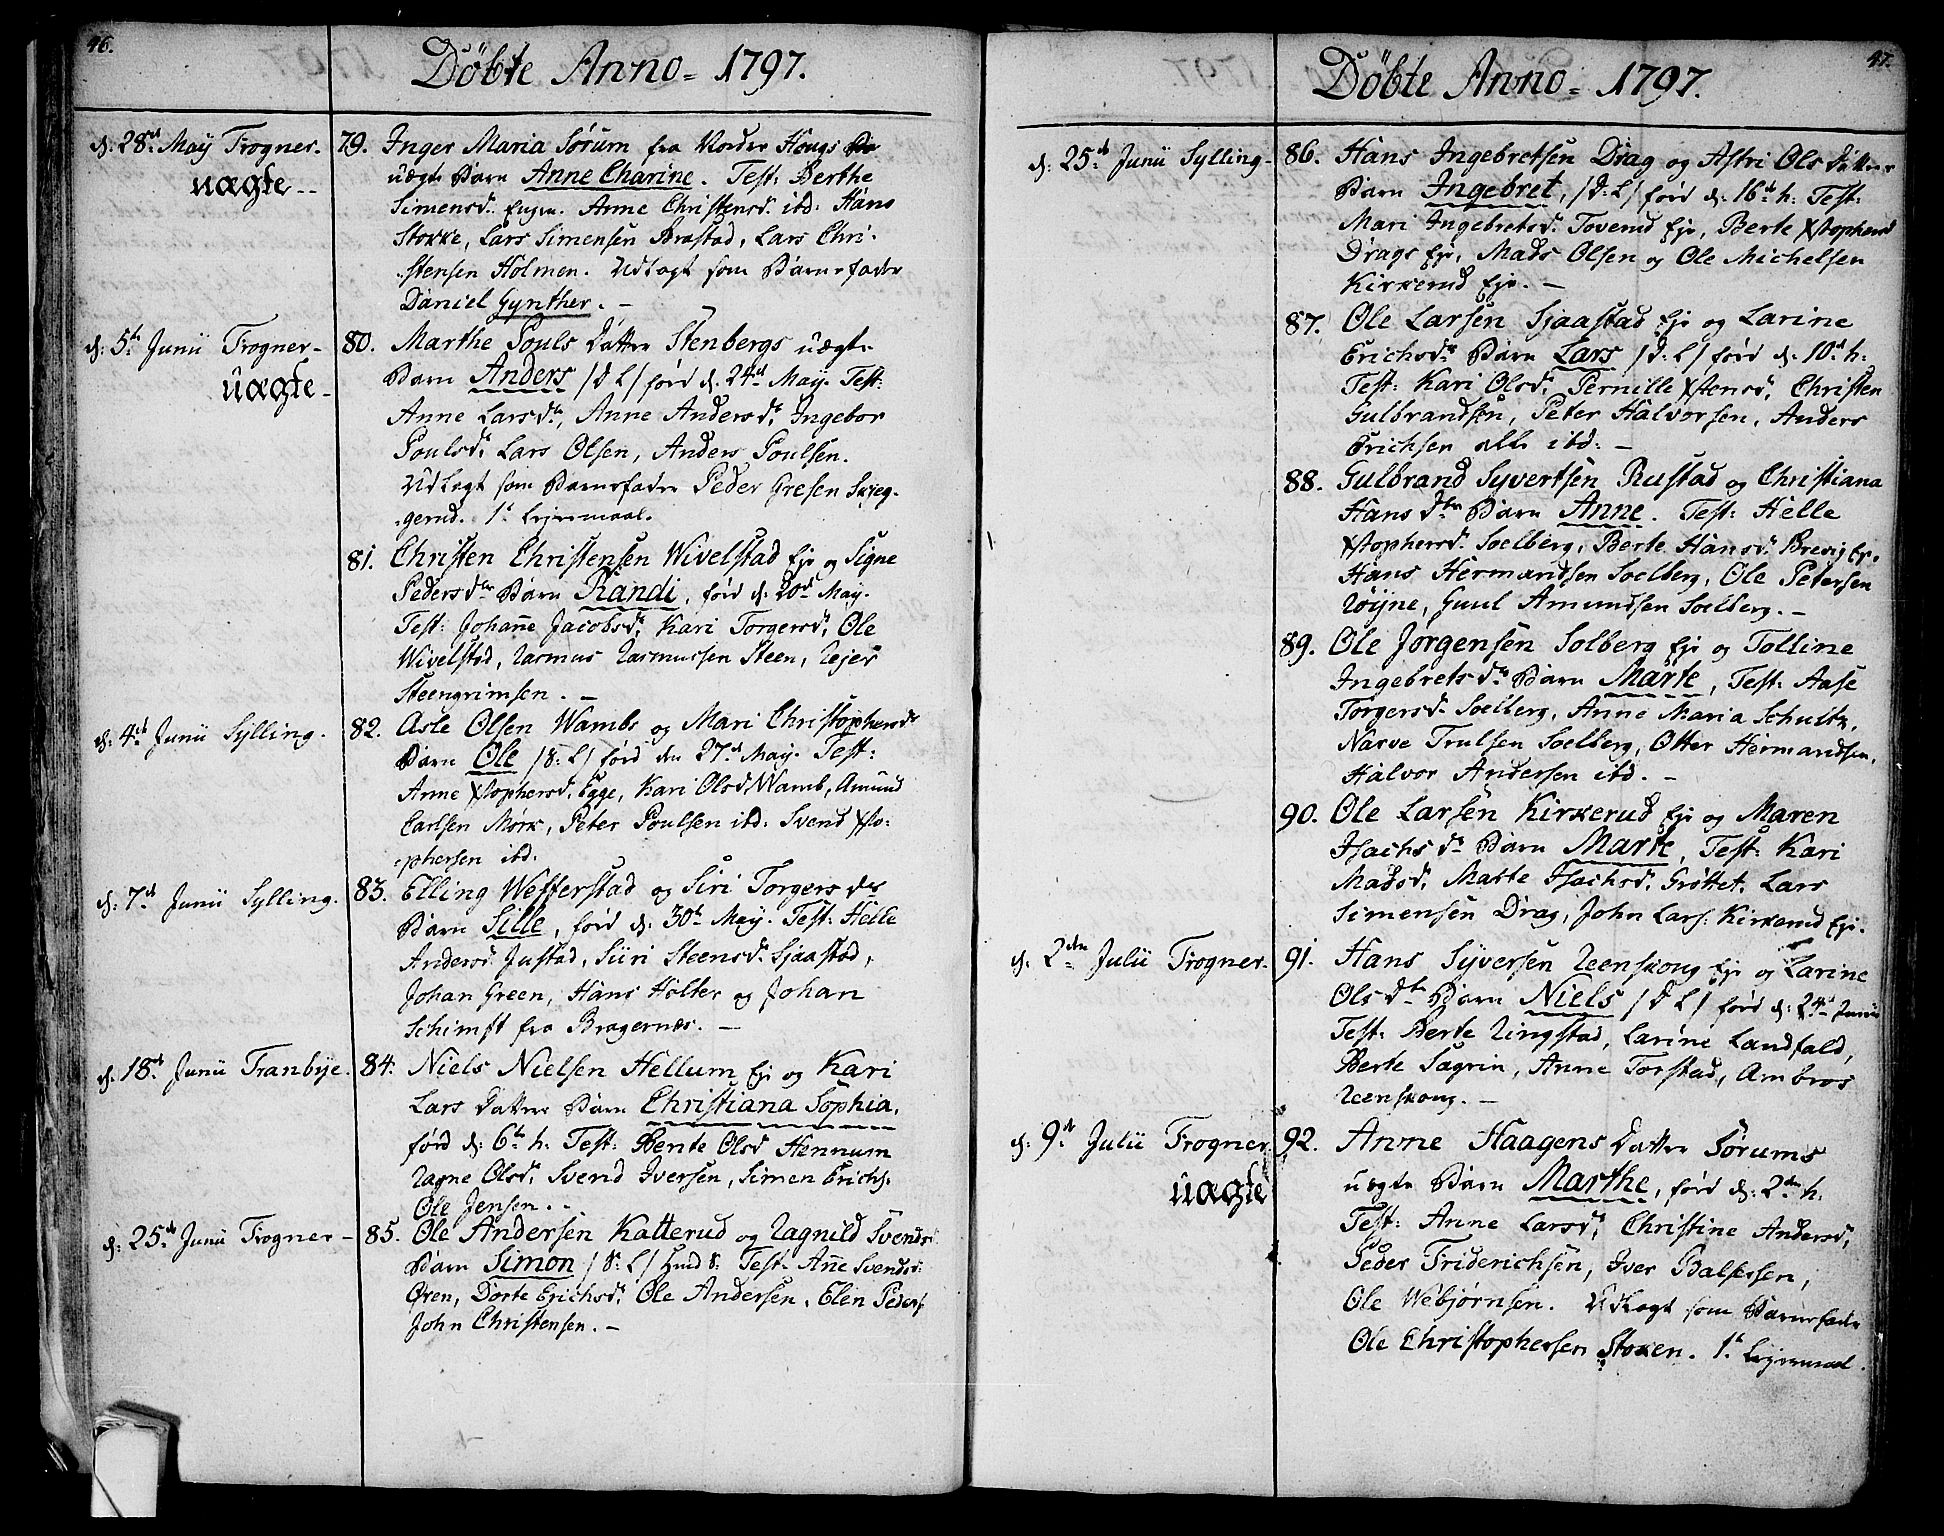 46.
Döbte Anno = 1797.
d: 28de May Trogner.
uægte --
79. Inger Maria Sørum fra Norder Hougs
uægte Barn Anne Charine. Test: Berthe
Simensd. Anne Christensd. ibd: Hans
Stokke, Lars Simensen Brastad, Lars Chri-
stensen Holmen. Udlagt som Barnefader
Daniel Gynther. -
d. 5te Junii Trogner -
uægte -
80. Marthe Pouls Datter Stenbergs uægte
Barn Anders / d L / förd d. 24de May. Test:
Anne Larsdr, Anne Andersdr Ingebor
Poulsdr Lars Olsen, Anders Poulsen.
Udlagt som Barnefader Peder Gresen Skjeg-
gerud. 1te Lejermaal.
81. Christen Christensen Wivelstad Eje og Signe
Pedersdtr Barn Randi, förd d. 20de May.
Test: Johan̄e Jacobsdr, Kari Torgersdr, Ole
Wivelstad, Rasmus Rasmussen Steen, Rejer
Steengrimsen. -
d. 4de Junii Sylling.
82. Asle Olsen Wambs og Mari Christophersdr
Barn Ole / d: L / förd den 27de May. Test:
Anne Xstophersd. Egge, Kari Olsd Wamb, Amund
Carlsen Mörk, Peter Poulsen ibd: Svend Xsto-
phersen ibd.
d. 7de Junii Sylling.
83. Elling Wefferstad og Siri Torgers dtr
Barn Sille, förd d: 30te May. Test: Helle
Andersd. Justad, Siiri Steensd. Sjaastad,
Johan Green, Hans Holter og Johan
Schimft fra Bragernæs. -
d. 18de Junii Tranbye.
84. Niels Nielsen Hellum Eje og Kari
Lars Datters Barn Christiana Sophia,
förd d: 6te h: Test: Bente Olsd Hennum
Ragne Olsdr, Svend Iversen, Simen Erichs.
Ole Jensen. -
d: 25de Junii Trogner -
85. Ole Andersen Katterud og Ragnild Svendsd
Barn Simon / d: L / Test. An̄e Svendsd:
Ören, Dorte Erichsdr, Ole Andersen, Elen Peders
John Christensen. -
47.
Döbte Anno = 1797.
d. 25de Junii Sylling -
86. Hans Ingebretsen Drag og Astri Ols Datters
Barn Ingebret, / d: L / förd d. 16de h: Test:
Mari Ingebretsd. Toverud Eje, Berte Xstophersd
Drags Eje, Mads Olsen og Ole Michelsen
Kirkerud Eje. -
87. Ole Larsen Sjaastad Eje og Larine
Erichsdr Barn Lars / d: L / förd d. 10de h:
Test: Kari Olsdr, Pernille Xstensdr, Christen
Gulbrandsen, Peter Halvorsen, Anders
Erichsen alle ibd: -
88. Gulbrand Syvertsen Rustad og Christiana
Hans dtr Barn Anne. Test: Helle
Xstophersd. Soelberg, Berte Hansdr Brevig Eje,
Hans Hermandsen Soelberg, Ole Petersen
Röyne, Guul Amundsen Soelberg. -
89. Ole Jörgensen Solberg Eje og Tolline
Ingebrets dr Barn Marte, Test: Aase
Torgersdr Soelberg, Anne Maria Schultz,
Narve Trulsen Soelberg, Otter Hermandsen,
Halvor Andersen ibd. -
90. Ole Larsen Kirkerud Eje og Maren
Isachs dr Barn Marte, Test: Kari
Madsdr, Marte Isachsdr. Gröttet. Lars
Simensen Drag, John Lars: Kirkerud Eje.
d. 2den Julii Trogner.
91. Hans Syversen Reenskoug Eje og Larine
Ols dtr Barn Niels / d L / förd d: 24de Junii
Test: Berte Ringstad, Larine Landfald,
Berte Sagrin, Anne Torstad, Ambros
Reenskoug. -
d: 9de Julii Trogner
uægte
92. Anne Haagens Datter Sörums
uægte Barn Marthe, förd d. 2den h:
Test: Anne Larsdr, Christine Andersdr,
Peder Friderichsen, Iver Balsersen,
Ole Webjørnsen. Udlagt som Barnefader
Ole Christophersen Stoken. 1te Lejermaal.